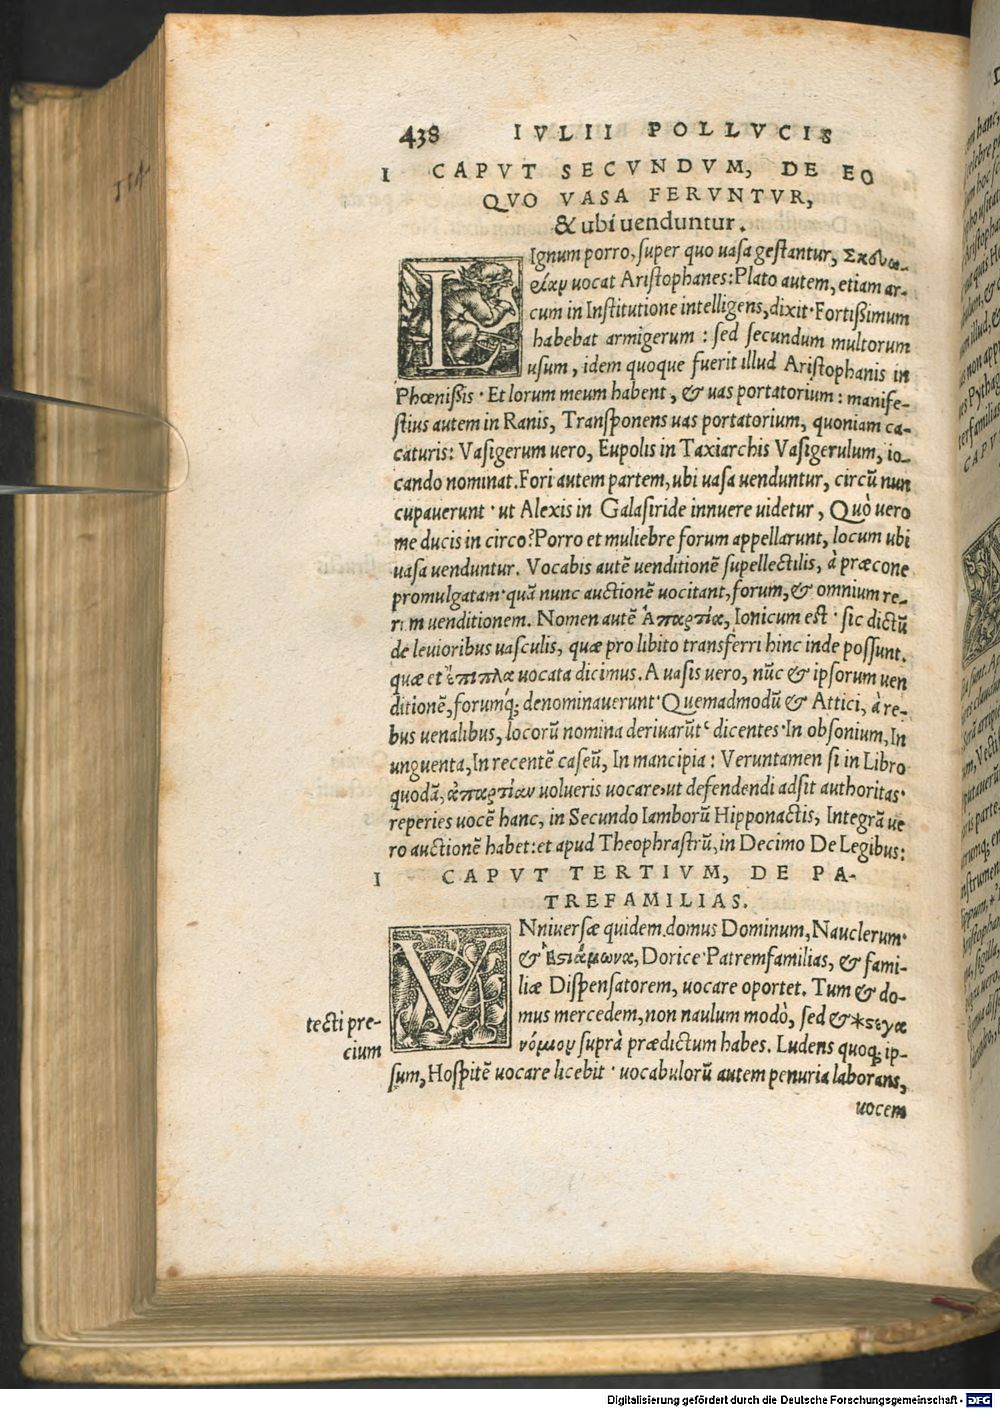 114.
438 IVLII POLLVCIS
I CAPVT SECVNDVM, DE EO
QVO VASA FERVNTVR,
& ubi uenduntur.
LIgnum porro, super quo uasa gestantur, Σκδυω-
φόριον uocat Aristophanes: Plato autem, etiam ar-
cum in Institutione intelligens, dixit· Fortißimum
habebat armigerum: sed secundum multorum
usum, idem quoque fuerit illud Aristophanis in
Phœnißis· Et lorum meum habent, & uas portatorium: manife-
stius autem in Ranis, Transponens uas portatorium, quoniam ca-
caturis: Vasigerum uero, Eupolis in Taxiarchis Vasigerulum, io-
cando nominat. Fori autem partem, ubi uasa uenduntur, circū nun
cupauerunt· ut Alexis in Galasiride innuere uidetur, Quò uero
me ducis in circo? Porro et muliebre forum appellarunt, locum ubi
uasa uenduntur. Vocabis autē uenditionē supellectilis, à præcone
promulgatam· quā nunc auctionē uocitant, forum, & omnium re-
rum uenditionem. Nomen autē Ἀπαρτία, Ionicum est· sic dictū
de leuioribus uasculis, quæ pro libito transferri hinc inde possunt.
quæ et ἔπιπλα uocata dicimus. A uasis uero, nūc & ipsorum uen
ditionē, forumq́; denominauerunt· Quemadmodū & Attici, à re-
bus uenalibus, locorū nomina deriuarūt· dicentes· In obsonium, In
unguenta, In recentē caseū, In mancipia: Veruntamen si in Libro
quodā, ἀπαρτίαν uolueris uocare, ut defendendi adsit authoritas·
reperies uocē hanc, in Secundo Iamborū Hipponactis, Integrā ue
ro auctionē habet: et apud Theophrastrū, in Decimo De Legibus:
I CAPVT TERTIVM, DE PA-
TREFAMILIAS.
VNniuersæ quidem domus Dominum, Nauclerum·
& Ἑστιάμωνα, Dorice· Patremfamilias, & fami-
liæ Dispensatorem, uocare oportet. Tum & do-
mus mercedem, non naulum modò, sed & *στεγα
νόμιον suprà prædictum habes. Ludens quoq; ip-
tecti pre-
cium
sum, Hospitē uocare licebit· uocabulorū autem penuria laborans,
uocem
Digitalisierung gefördert durch die Deutsche Forschungsgemeinschaft - DFG